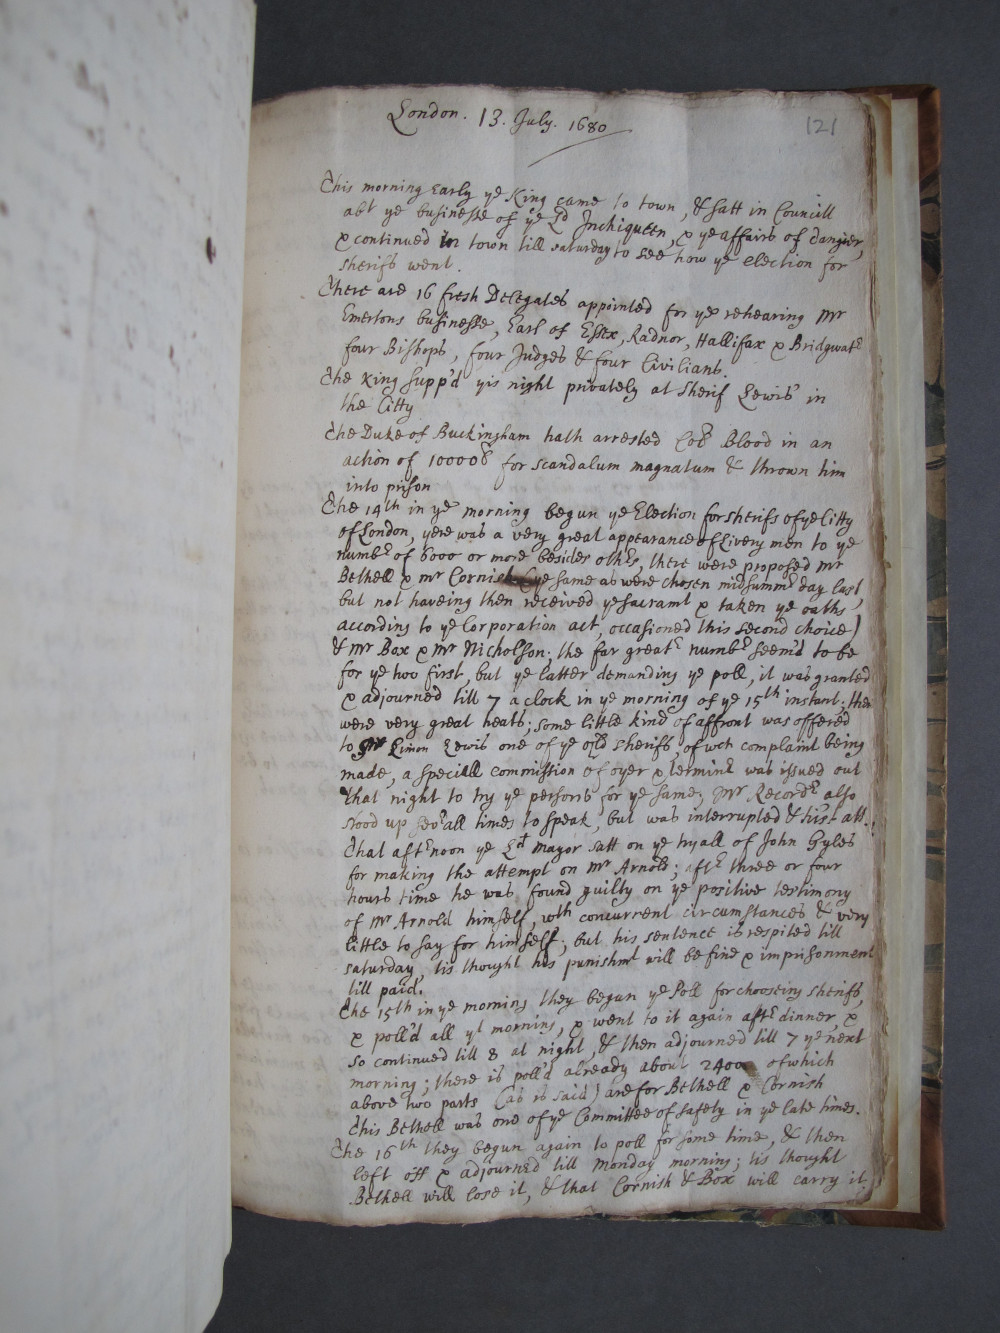 London. 13. July. 1680
121
This morning Early ye King came to town, & satt in Councill
abt ye businesse of ye Ld Inchiqueen, & ye affairs of Tangier,
& continued in town till saturday to see how ye election for
sherifs went.
There are 16 fresh Delegates appointed for ye rehearing Mr
Emertons businesse, Earl of Essex, Radnor, Hallifax & Bridgwatr
four Bishops, four Judges & four Civilians.
The King supp'd yis night privately at Sherif Lewis' in
the Citty
The Duke of Buckingham hath arrested Coll Blood in an
action of 10000ll for scandalum magnatum & thrown him
into prison
The 14th in ye morning begun ye Election for sherifs of ye Citty
of London, yere was a very great appearance of Livery men to ye
numbr of 6000 or more besides othrs, there were proposed Mr
Bethell & Mr Cornish (ye same as were chosen midsummr day last,
but not haveing then received ye sacramt & taken ye oaths
according to ye Corporation act, occasioned this second choice)
& Mr Box & Mr Nicholson; the far greatr numbr seem'd to be
for ye two first, but ye latter demanding ye poll, it was granted
& adjourned till 7 a clock in ye morning of ye 15th instant; there
were very great heats; some little kind of affront was offered
to Sr Simon Lewis one of ye old sherifs, of wch complaint being
made, a speciall commission of oyer & terminr was issued out
that night to try ye persons for ye same; Mr Recordr also
stood up sevrall times to speak, but was interrupted & hist att.
That aftrnoon ye Ld Mayor satt on ye tryall of John Gyles
for making the attempt on Mr Arnold; aftr three or four
hours time he was found guilty on ye positive testimony
of Mr Arnold himself, wth concurrent circumstances & very
little to say for himself; but his sentence is respited till
saturday, tis thought his punishmt will be fine & imprisonment
till paid.
The 15th in ye morning they begun ye Poll for choosing sherifs,
& poll'd all yt morning, & went to it again aftr dinner, &
so continued till 8 at night, & then adjourned till 7 ye next
morning; there is poll'd already about 2400 of which
above two parts (as is said) are for Bethell & Cornish
This Bethell was one of ye Committee of safety in ye late times.
The 16th they begun again to poll for some time, & then
left off & adjourned till Monday morning; tis thought
Bethell will lose it, & that Cornish & Box will carry it